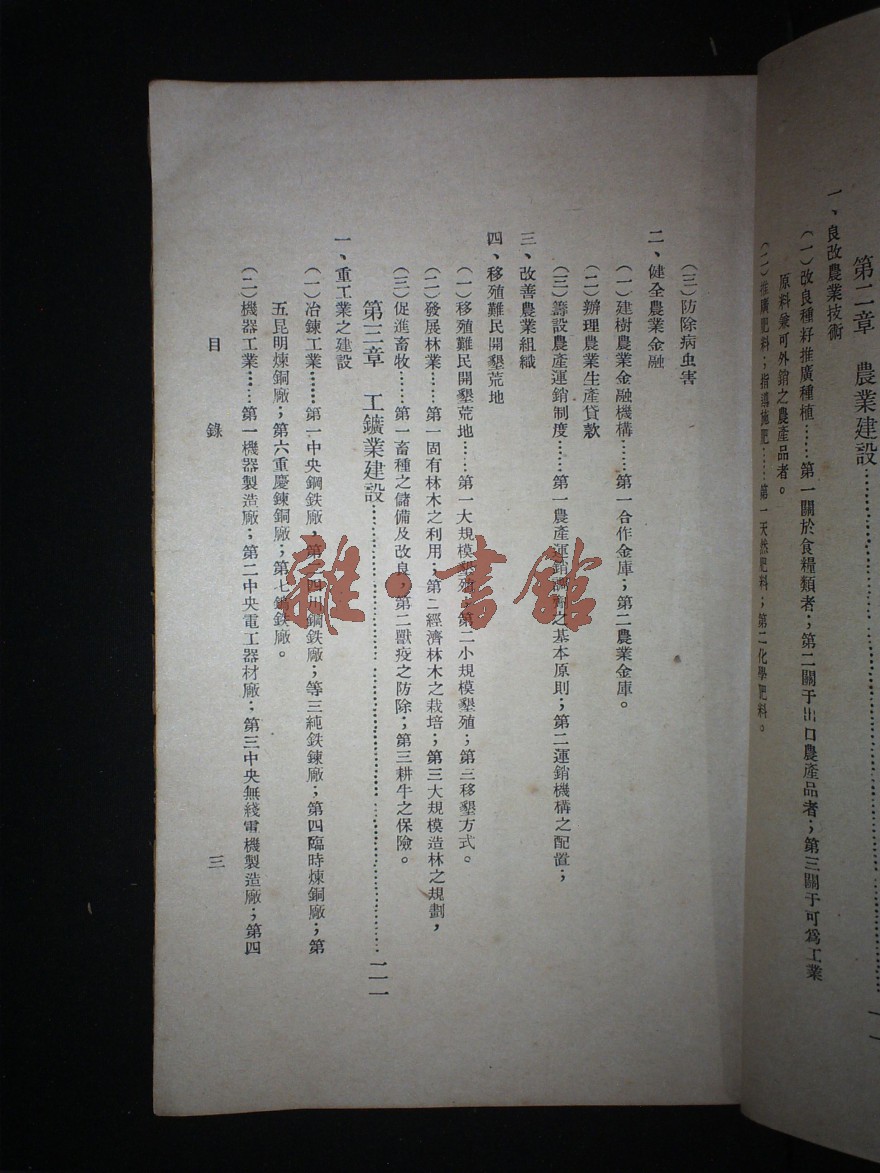 第二章　農業建設
一、良改農業技術
(一)改良種籽推廣種植……第一關於食糧類者；第二關于出口農產品者；第三關于可爲工業
原料兼可外銷之農產品者。
(二)推廣肥料；指導施肥……第一天然肥料；第二化學肥料。
(三)防除病虫害
二、健全農業金融
(一)建樹農業金融機構……第一合作金庫；第二農業金庫。
(二)辦理農業生產貸款
(三)籌設農產運銷制度……第一農產運銷調劑之基本原則；第二運銷機構之配置；
三、改善農業組織
四、移殖難民開墾荒地
(一)移殖難民開墾荒地……第一大規模墾殖；第二小規模墾殖；第三移墾方式。
(二)發展林業……第一固有林木之利用；第二經濟林木之栽培；第三大規模造林之規劃，
(三)促進畜牧……第一畜種之儲備及改良，第二獸疫之防除；第三耕牛之保險。
第三章　工鑛業建設……二一
一、重工業之建設
(一)冶鍊工業……第一中央鋼鉄廠，第二四川鋼鉄廠；等三純鉄鍊廠；第四臨時煉銅廠；第
五昆明煉銅廠；第六重慶鍊銅廠；第七鎢鉄廠。
(二)機器工業……第一機器製造廠；第二中央電工器材廠；第三中央無綫電機製造廠；第四
目　錄　三
雜·書館